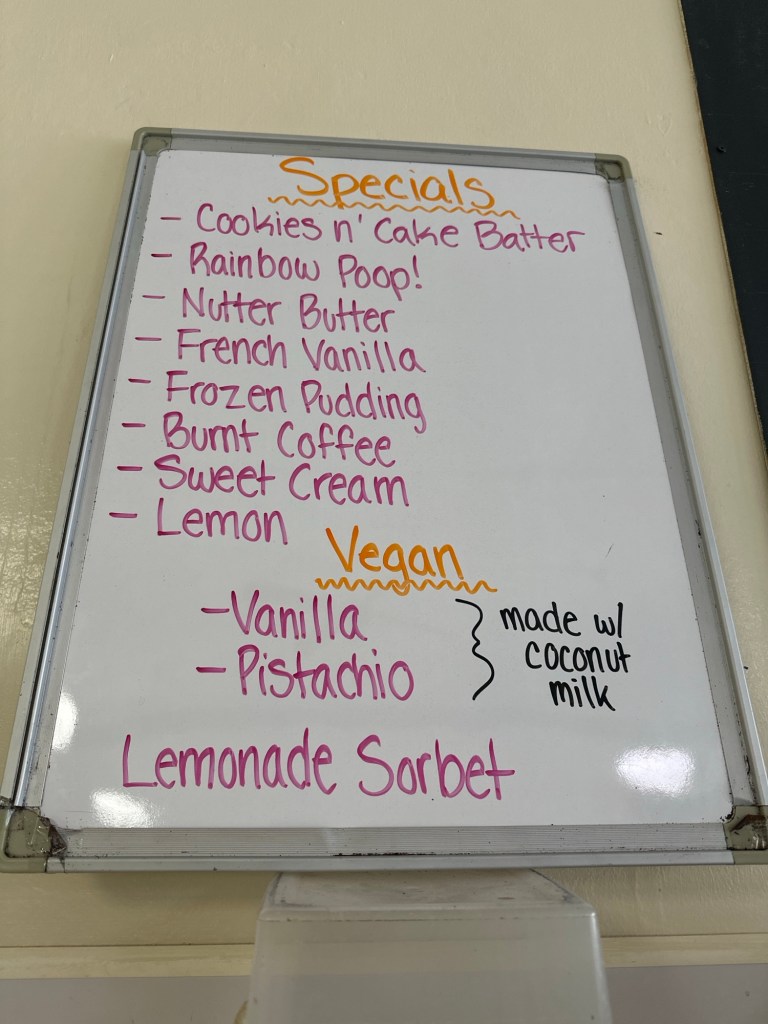 Specials
- Cookies n' Cake Batter
- Rainbow Poop!
- Nutter Butter
- French Vanilla
- Frozen Pudding
- Burnt Coffee
- Sweet Cream
- Lemon
Vegan
- Vanilla
- Pistachio
made w/
coconut
milk
Lemonade Sorbet